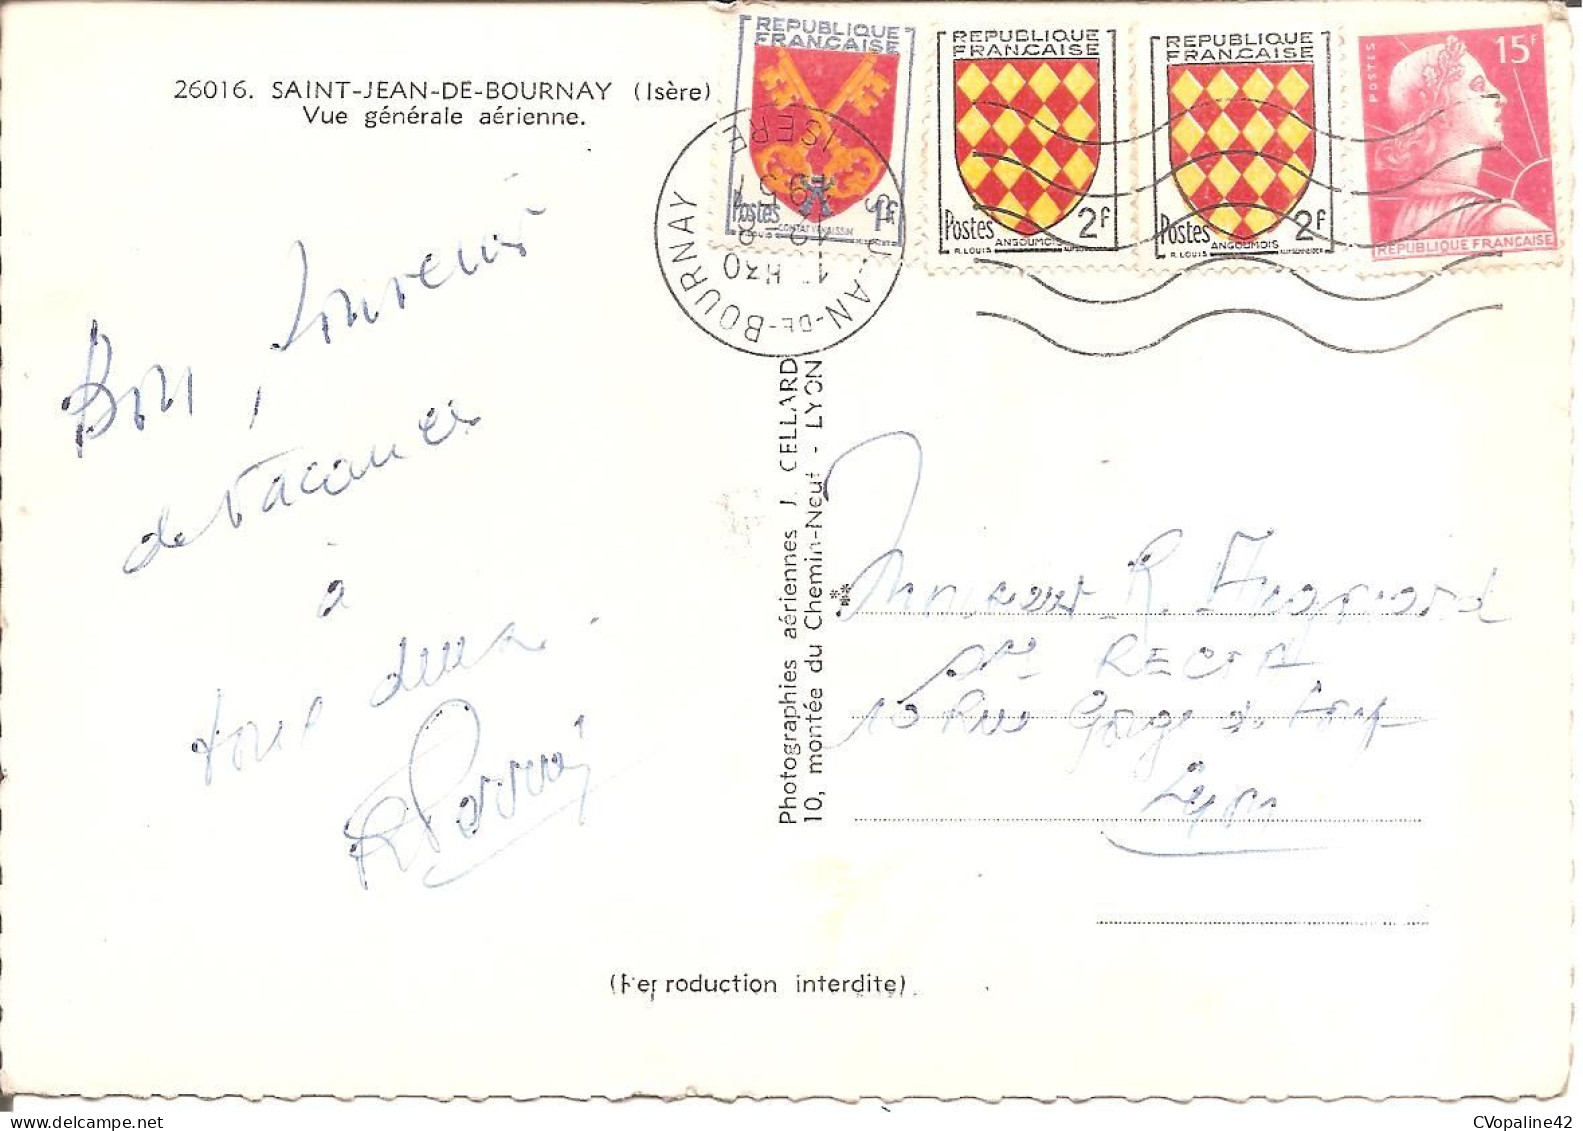 26016. SAINT-JEAN-DE-BOURNAY (Isère)
Vue générale aérienne.
REPUBLIQUE
FRANCAISE
Postes 1F
COMTAT VENAISSIN
REPUBLIQUE
FRANCAISE
Postes 2F
ANGOUMOIS
R. LOUIS
REPUBLIQUE
FRANCAISE
Postes 2F
ANGOUMOIS
R. LOUIS
POSTES
15F
REPUBLIQUE FRANÇAISE
ST JEAN-DE-BOURNAY
ISERE
Bon Souvenir
de vacances
à
tous deux.
Photographies aériennes J. CELLARD
10, montée du Chemin-Neuf - LYON
Monsieur R.
RECTA
Rue
Lyon
(Reproduction interdite)
CVopaline42